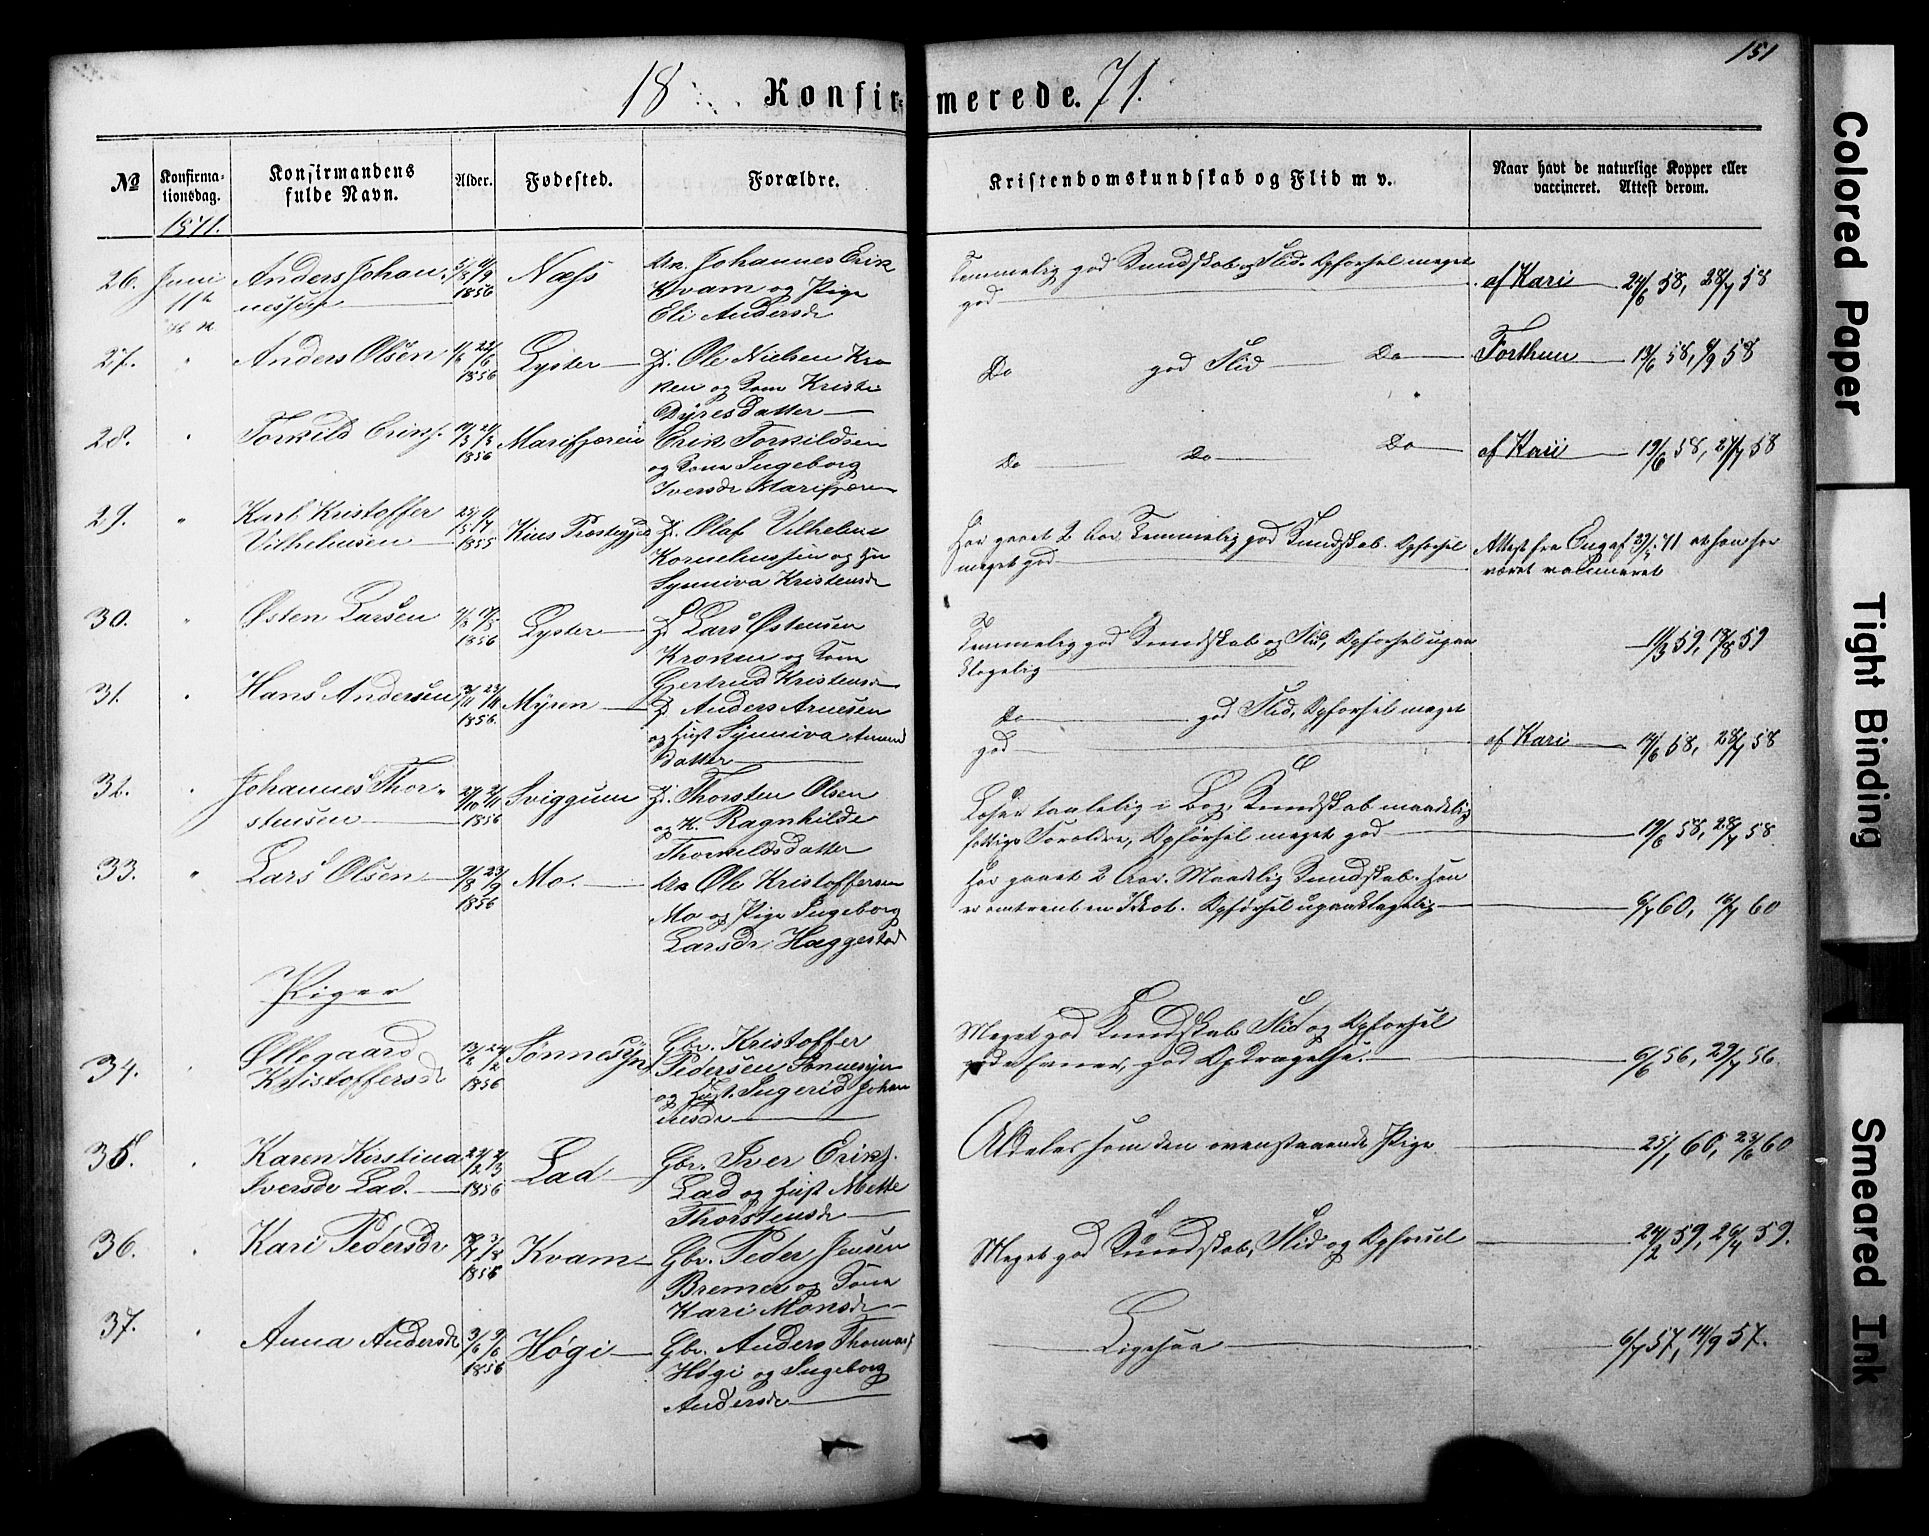 151
18 Konfirmerede. 71.
№ Konfirma-tionsdag. Konfirmandens fulde Navn. Alder. Fødested. Forældre. Kristendomskundskab og Flid m v. Naar havt de naturlige Kopper eller vaccineret. Attest derom.
1871.
26. Juni Anders Johan- Næss Johannes Erik
11te nessen 1856 Kvam og Pige
Eli Andersdr
Temmelig god Kundskab og Flid. Opførsel meget
god af Kari 24/6 58, 28/7 58
27. " Anders Olsen 1856 Lyster Ole Nielsen Kro
ken og Kone Kristi
Dyresdatter
Do god Flid Do Forthun 18/6 58, 8/9 58
28. " Torkild Eriks. 1856 Marifjæren Erik Torkildsen
og Kone Ingeborg
Iversdr Marifjæren
Do Do Do af Kari 19/6 58, 27/7 58
29. " Karl Kristoffer Kius Præstegjæld Olaf Vilhelm
Vilhelmsen 1855 Korneliussen og
Synniva Kristensdr
Har gaaet 2 Aar. Temmelig god Kundskab. Opførsel
meget god
Attest fra 71 at han har
været vaccineret
30. " Østen Larsen 1856 Lyster Lars Østensen
Kroken og Kone
Gjertrud Kristensdr
Temmelig god Kundskab og Flid, Opførsel upaa
klagelig 11/3 59, 18/8 59
31. " Hans Andersen 1856. Myren Anders Arnesen
og Hust Synniva Amund
datter
Do god Flid, Opførsel meget
god af Kari 17/6 58, 28/7 58
32. " Johannes Thor- Sviggum Thorsten Olsen
stensen 1856 og K. Ragnhilde
Thorkildsdatter
Læser taalelig i Bog, Kundskab maadelig
fattige Forældre, Opførsel meget god 19/6 58, 28/7 58.
33. " Lars Olsen 1856 Mo. Ole Kristoffersen
Mo og Pige Ingeborg
Larsdr Haggestad
Har gaaet 2 Aar. Maadelig Kundskab. Han
er omtrent en Idiot. Opførsel upaaklagelig 6/7 60, 16/7 60
Piger
34. " Øllegaard 13/2 24/2 1856 Sønnesyn Gbr. Kristoffer
Kristoffersdr Pedersen Sønnesyn
og Hust. Ingerid Johan
nesdr
Meget god Kundskab Flid og Opførsel
god Opdragelse. 6/6 56, 29/7 56.
35. " Karen Kirstina 1856 Lad Gbr. Iver Eriks.
Iversdr Lad. Lad og Hust Mette
Thorstensdr
Aldeles som den ovenstaaende Pige 25/1 60, 23/6 60
36. " Kari Pedersdr 1856 Kvam Gbr. Peder Jensen
Bremer og Kone
Kari Monsdr
Meget god Kundskab, Flid og Opførsel 24/2 59, 26/4 59.
37. " Anna Andersdr 3/6 9/6 1856 Høgi Gbr. Anders Thomas
Høgi og Ingeborg
Andersdr
Ligesaa 6/7 57, 14/9 57.
Colored Paper
Tight Binding
Smeared Ink